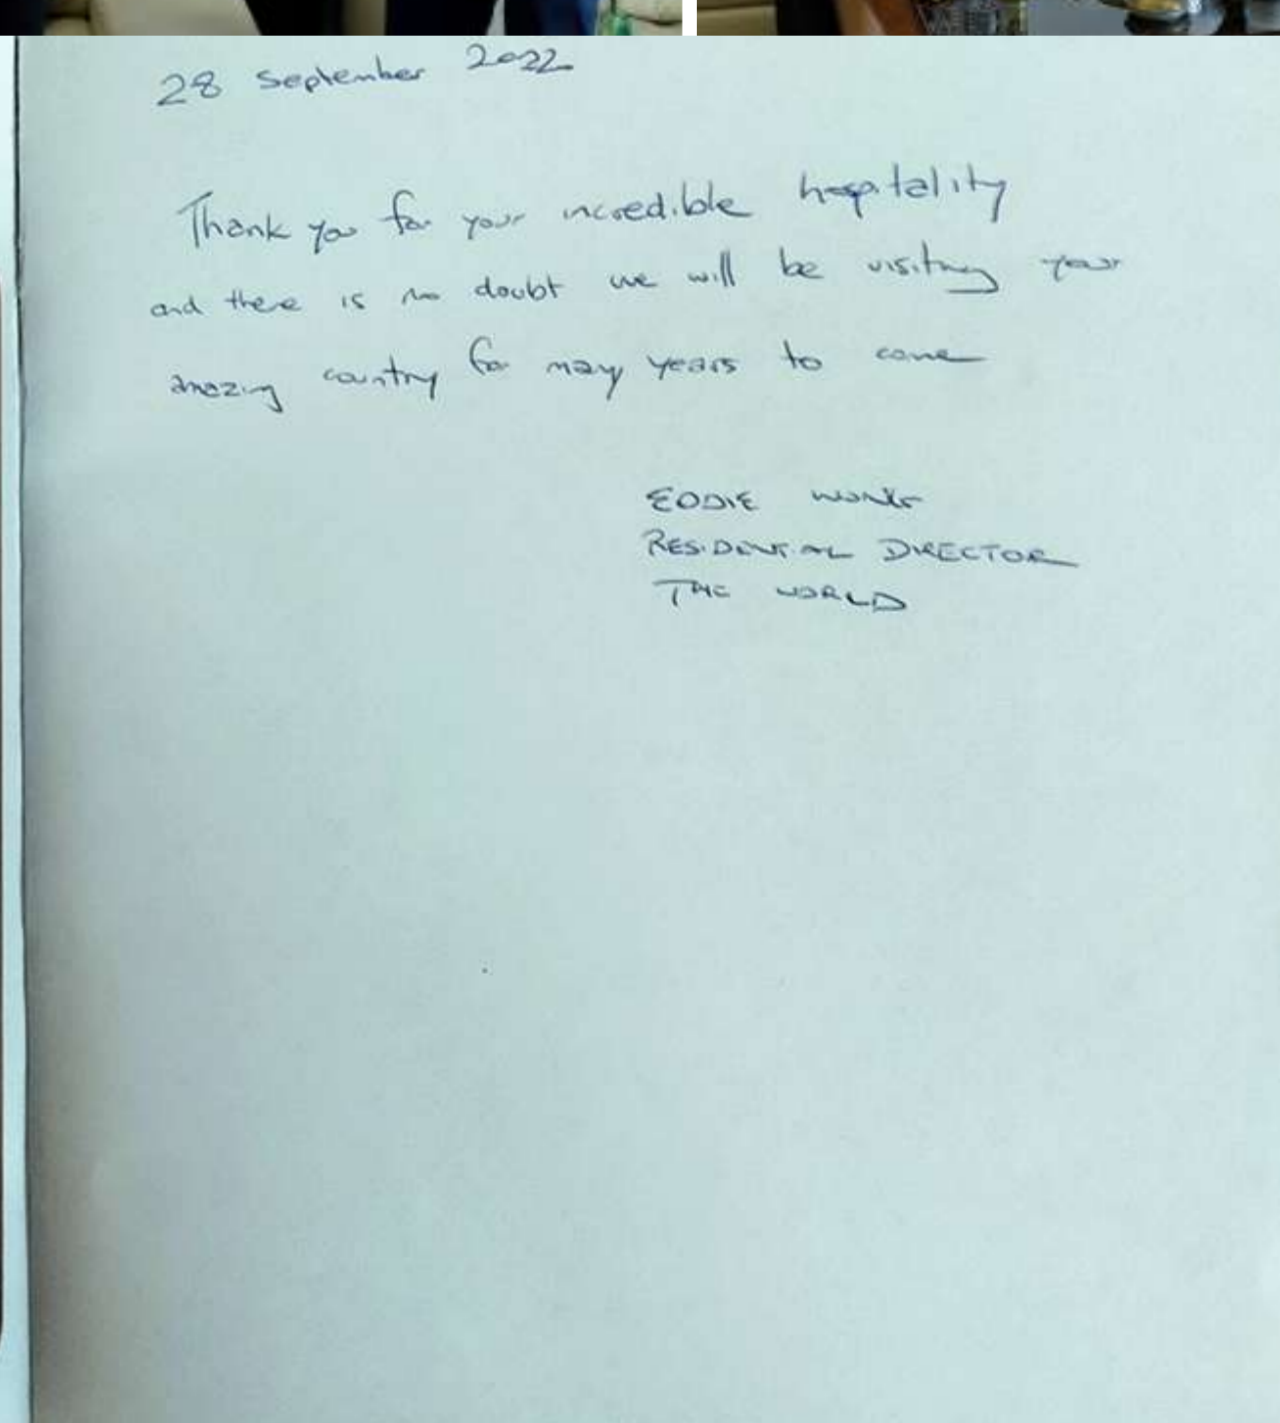 28 September 2022
Thank you for your incredible hospitality
and there is no doubt we will be visiting your
amazing country for many years to come
EDDIE
RESIDENTIAL DIRECTOR
THE WORLD